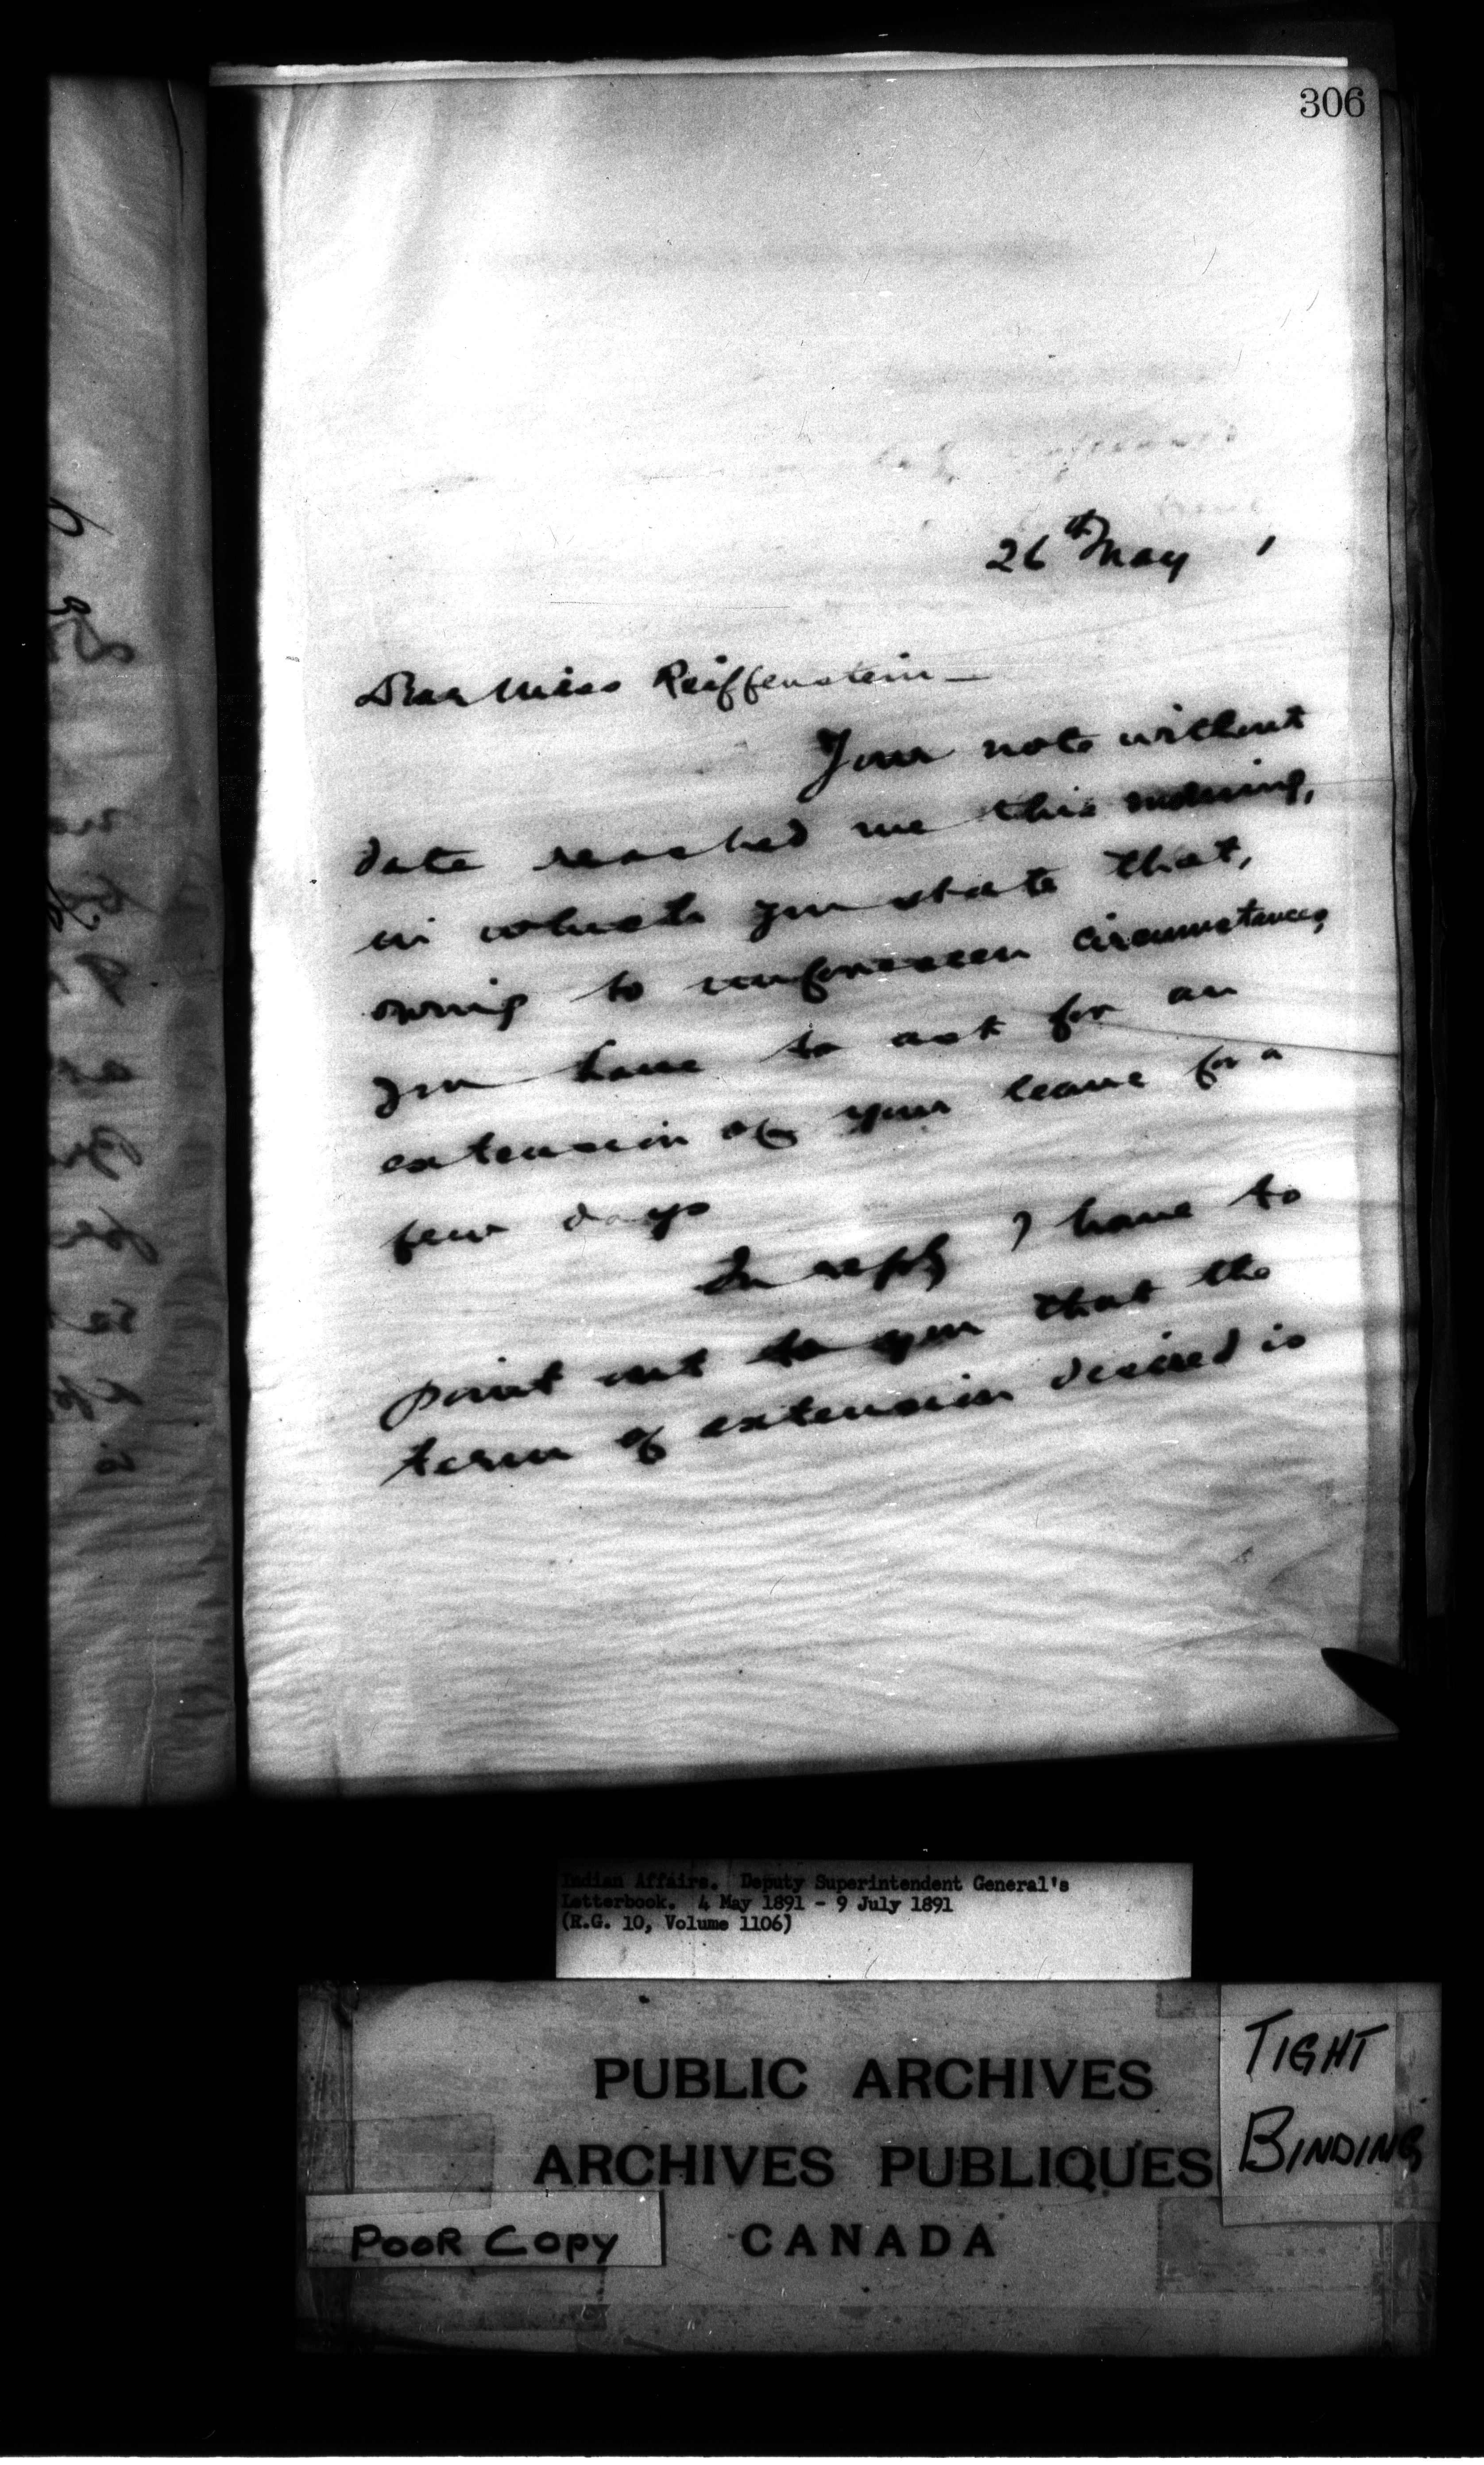 306
26th May 1
Dear Miss Reiffenstein—
Your note without
date reached me this morning,
in which you state that,
owing to unforeseen circumstances,
you have to ask for an
extension of your leave for a
few days
In reply I have to
point out to you that the
term of extension desired is
Indian Affairs. Deputy Superintendent General's
Letterbook. 4 May 1891 - 9 July 1891
(R.G. 10, Volume 1106)
TIGHT
BINDING
PUBLIC ARCHIVES
ARCHIVES PUBLIQUES
POOR COPY
CANADA